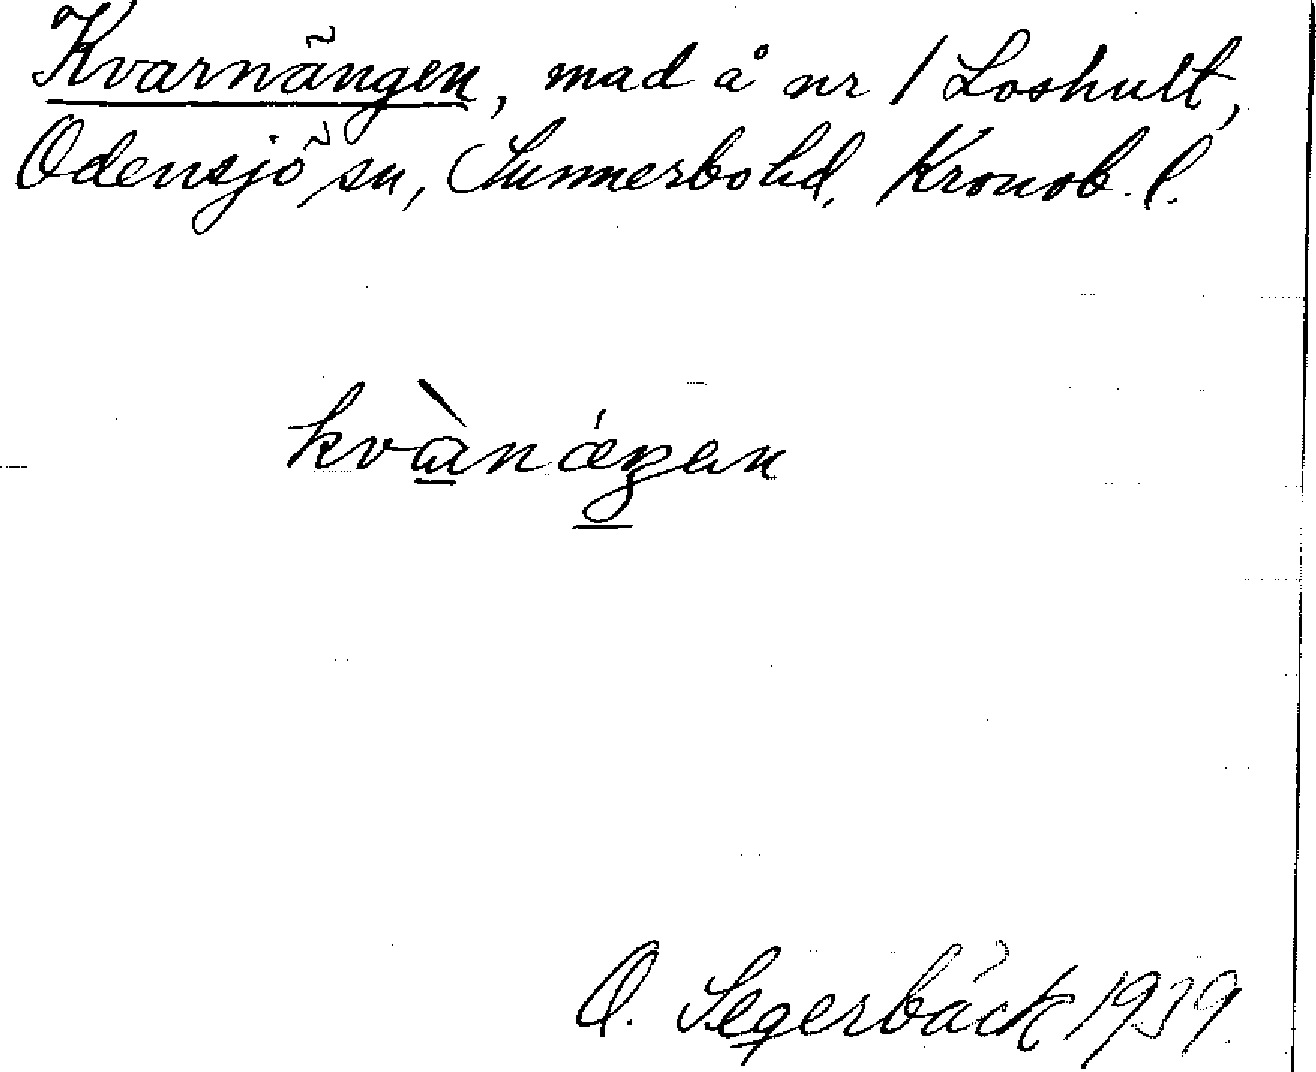 Kvarnängen, mad å nr 1 Loshult,
Odensjö sn, Sunnerbo hd, Kronob. l.
kvànǽŋen
O. Segerbäck 1939.